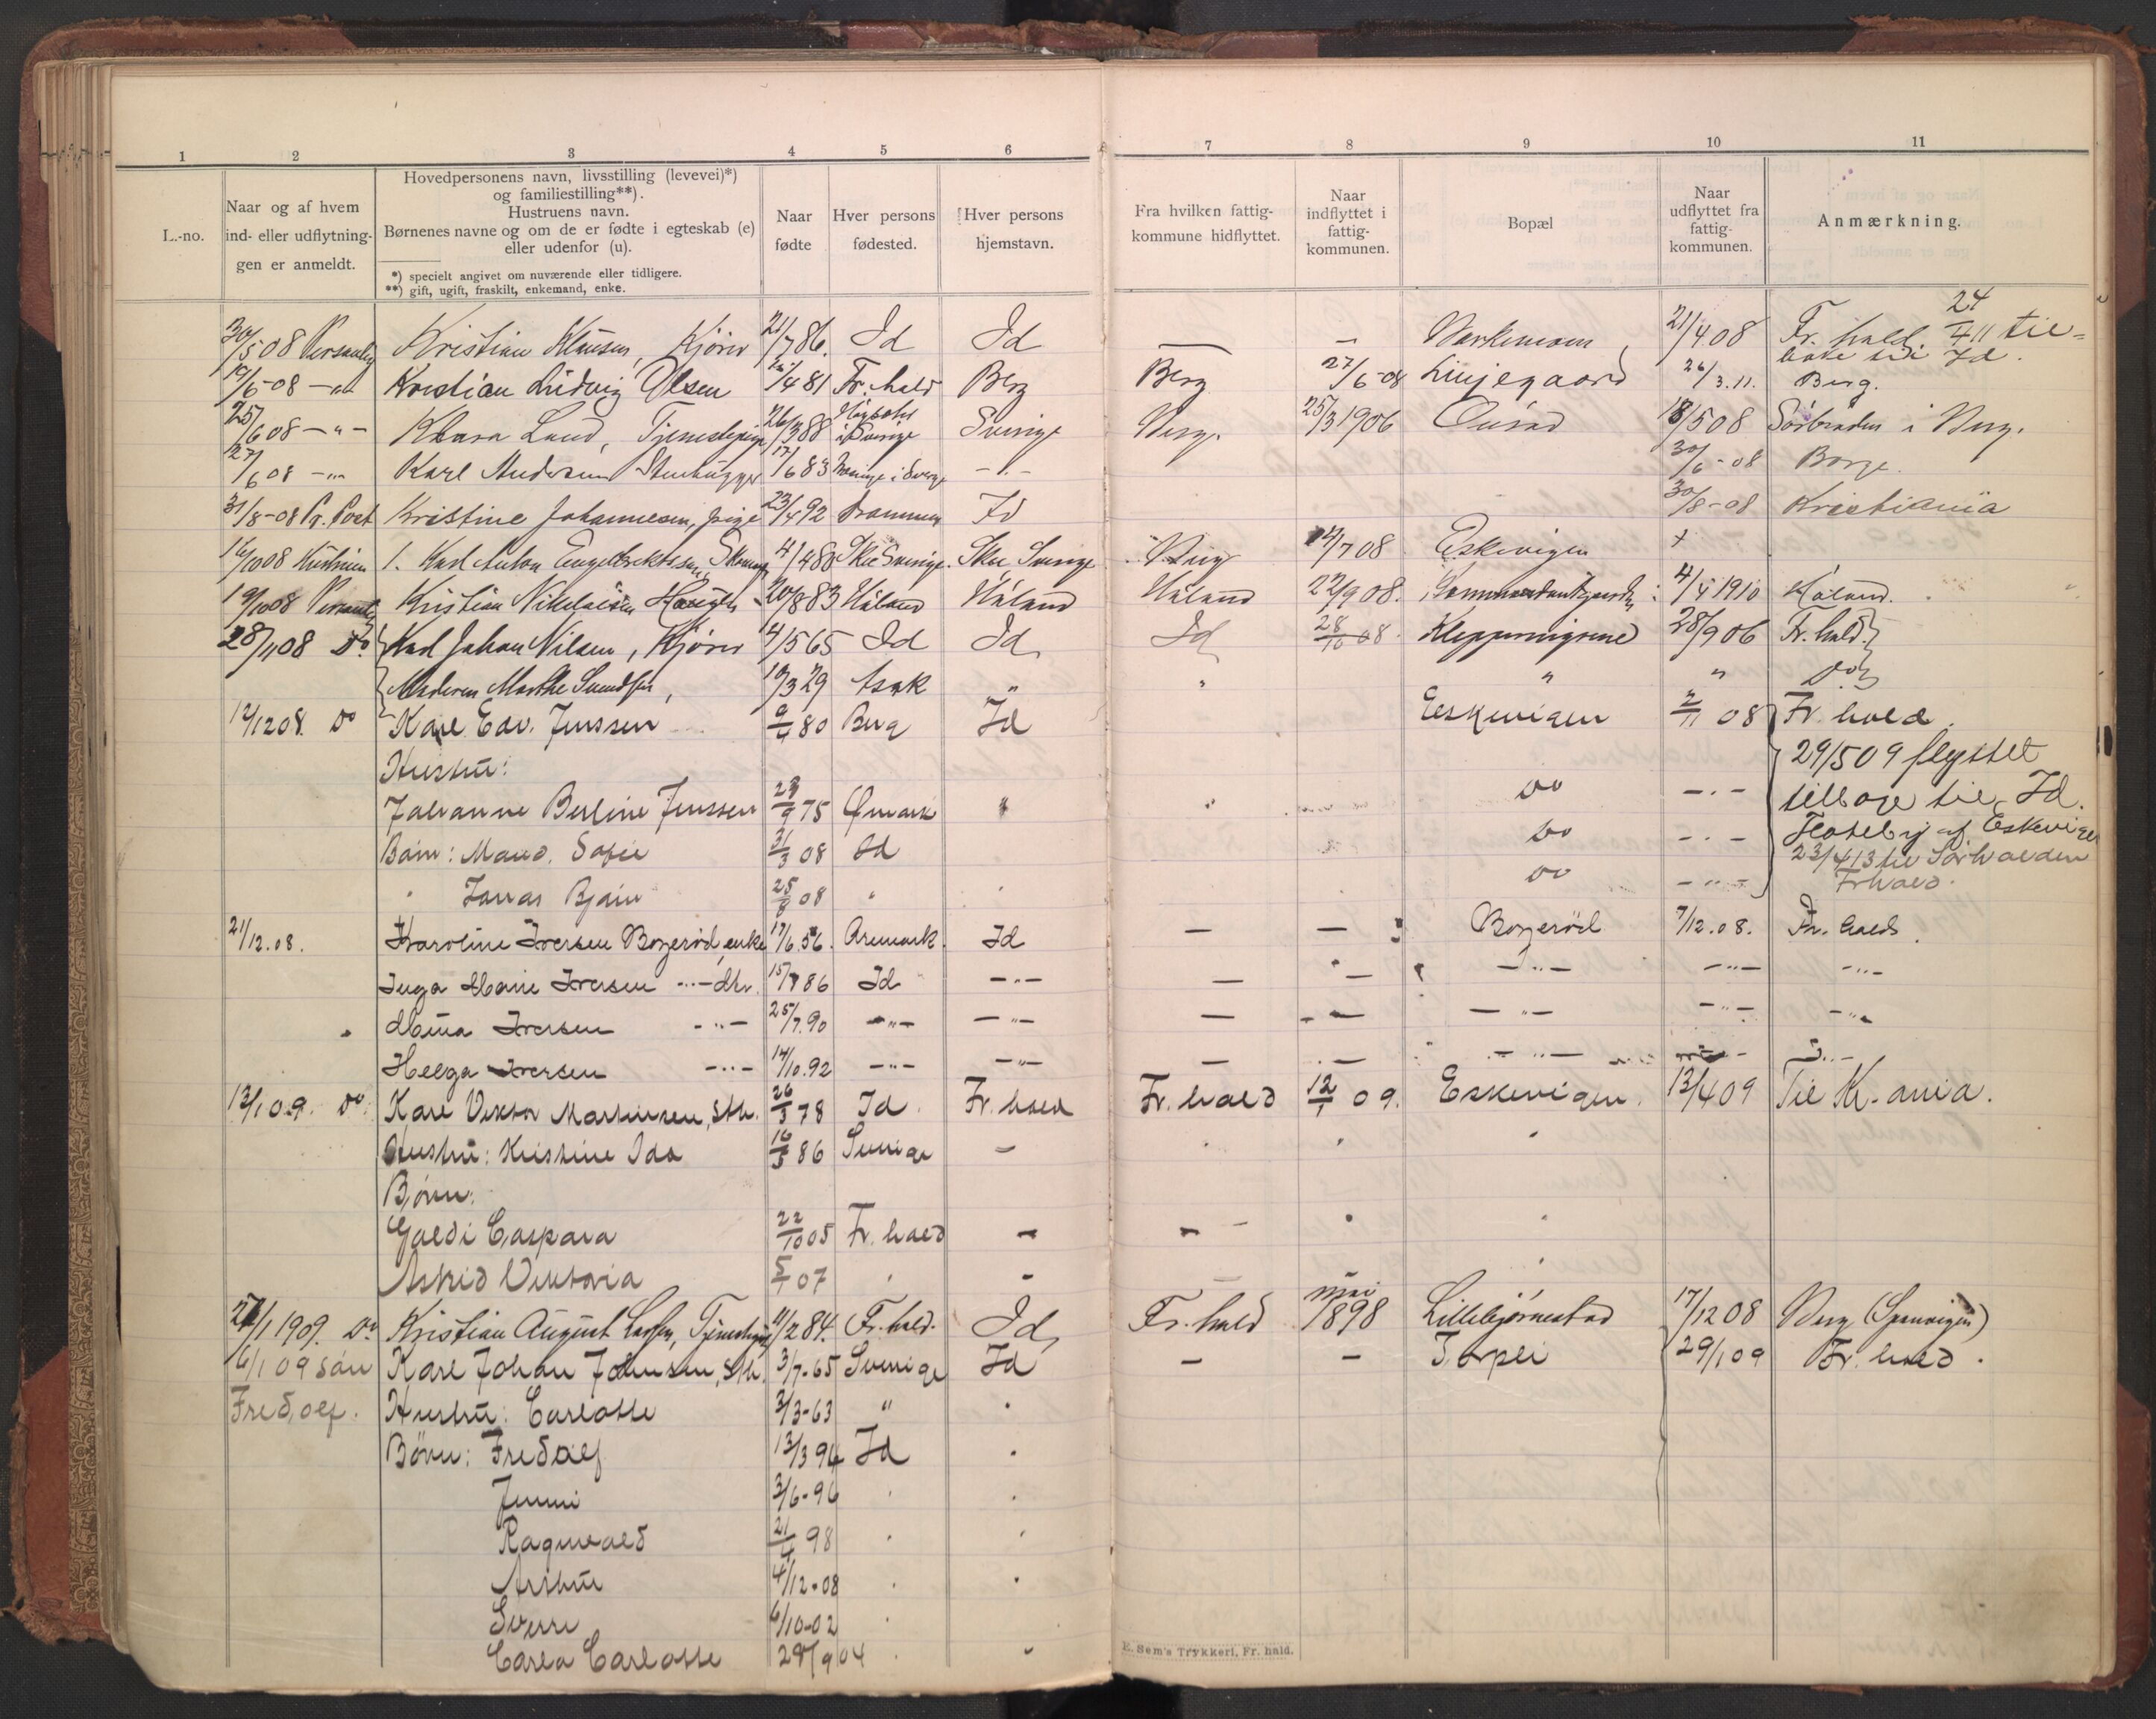 1 2 3 4 5 6 7 8 9 10 11
L.-no.
Naar og af hvem
ind- eller udflytnin-
gen er anmeldt.
Hovedpersonens navn, livsstilling (levevei)*)
og familiestilling**).
Hustruens navn.
Børnenes navne og om de er fødte i egteskab (e)
eller udenfor (u).
*) specielt angivet om nuværende eller tidligere.
**) gift, ugift, fraskilt, enkemand, enke.
Naar
fødte
Hver persons
fødested.
Hver persons
hjemstavn.
Fra hvilken fattig-
kommune hidflyttet.
Naar
indflyttet i
fattig-
kommunen.
Bopæl
Naar
udflyttet fra
fattig-
kommunen.
Anmærkning.
30/5 08 Kristian Klausen, Kjører 21/7 86. Id Id — — 21/4 08 Fr. hald 24/4 11 til-
bage til Id.
Kristian Ludvig Olsen 81 Fr. hald Berg Berg 27/6-08 Liujegaard 26/3.11. Berg.
25/6 08 — " — Klara Lund, Tjenestepige 26/3 88 i Sverige Sverige Berg. 25/3 1906 18/5 08 Sørbrøden i Berg.
27/6 08 — " Karl Andersen Stenhugger 17/6 83 i Sverge — " — 30/6-08 Borge.
31/8-08 Pr. Post Kristine Johannesen, pige 23/4 92 Drammen Id 30/8-08 Kristiania
16/10 08 1. Karl Anton Engebrektssen, 4/4 88 Skee Sverige. Skee Sverige Berg 12/7 08 Eskevigen +
19/10 08 Kristian Nikolaisen Haugen 20/8 83 Høland Høland Høland 22/9 08. 4/4 1910 Høland.
28/11 08 Do Karl Johan Nilsen, Kjører 4/5 65 Id Id Id 28/10 08. 28/9 06 Fr. hald.
Moderen Marthe Svendsen, 10/3 29 Asak " " " " Do
12/12 08. Do Karl Edv. Jenssen 9/4 80 Berg Id Eskevigen 2/11 08 Fr. hald.
Hustru: 29/5 09 flyttet
Johanne Berline Jenssen 28/9 75 Ømark " Do — " — tilbage til Id.
Barn: Maud. Sofie 31/3 08 Id Do — " — af Eskevigen
23/4 13 til Sørhalden
" Jonas Bjarn 25/8 08 " " Do — " — Frhald.
21/12.08. Karoline Iversen Borgerød, enke 17/6.56. Aremark Id — — Borgerød 7/12.08. Fr. hald.
Inga Marie Iversen — " — dtr. 15/7 86 Id — " — — — — " — — " — — " —
Mina Iversen — " — 25/7.90 — " — — " — — — — " — — " — — " —
Helga Iversen — " — 14/10.92 — " — — " — — — — " — — " — — " —
13/1 09. Do. Karl Viktor Martinsen, Sth. 26/5 78 Id. Fr. hald Fr. hald 12/1 09. Eskevigen. 13/4 09 Til Kr.ania.
Hustru: Kristine Ida 16/5 86 Sverige — " " "
Børn:
Galdi Caspara 22/10 05 Fr. hald — — "
Astrid Viktoria 5/1 07 " —
1909. Do Kristian August Larsen, 11/2 84. Fr. hald. Id Fr. hald mai 1898 Lillebjørnestad 17/12 08 Berg (Sponvigen)
6/1 09 sön Karl Johan Johnsen, Sth. 3/7-65 Sverige Id — — Torpei 29/1 09 Fr. hald.
Fredolf. Hustru: Carlotte 3/3-63 " "
Børn: Fredolf 13/3 94 Id "
Jenni 3/6-96 " "
Ragnvald 21/4 98 " "
Arthur 4/12-08 " "
Sverre 6/10-02 "
Carla Carlotte 29/9 04 " "
E. Sem's Trykkeri, Fr. hald.